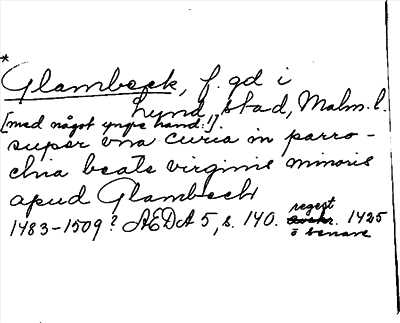 *
Glambeck, f. gd i
Lund, stad, Malm. l.
[med något yngre hand:!]
super vna curia in parro-
chia beate virginis minoris
apud Glambeck
1483-1509? ÆDA 5, s. 140. regest 1425
o benare